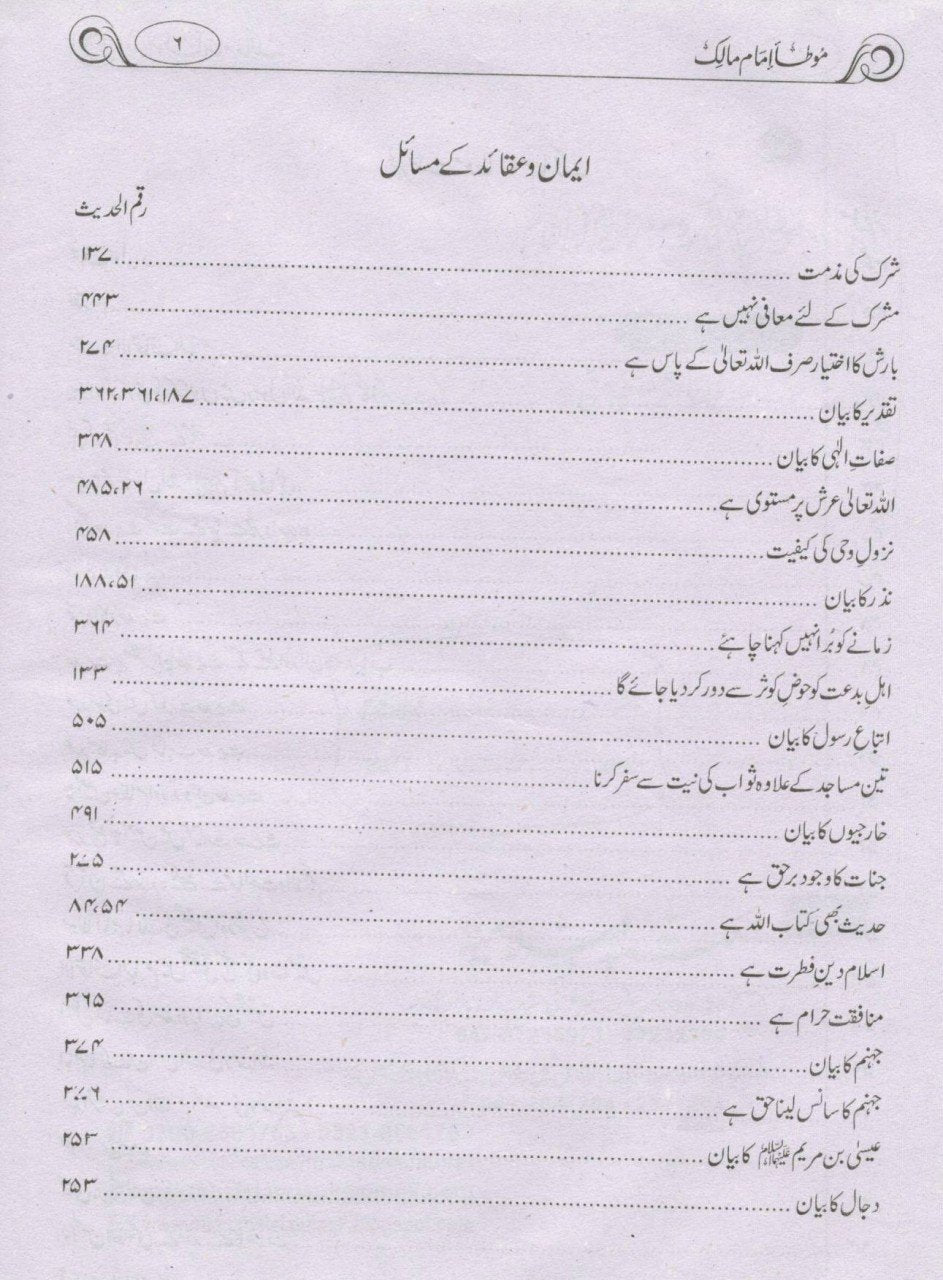 موطأ إمام مالک ۶
ایمان و عقائد کے مسائل
رقم الحدیث
شرک کی مذمت ۱۳۷
مشرک کے لئے معافی نہیں ہے ۴۴۳
بارش کا اختیار صرف اللہ تعالیٰ کے پاس ہے ۲۷۴
تقدیر کا بیان ۱۸۷، ۳۶۱، ۳۶۲
صفاتِ الٰہی کا بیان ۳۴۸
اللہ تعالیٰ عرش پر مستوی ہے ۲۶، ۴۸۵
نزولِ وحی کی کیفیت ۴۵۸
نذر کا بیان ۵۱، ۱۸۸
زمانے کو بُرا نہیں کہنا چاہئے ۳۶۴
اہلِ بدعت کو حوضِ کوثر سے دور کر دیا جائے گا ۱۳۳
اتباعِ رسول کا بیان ۵۰۵
تین مساجد کے علاوہ ثواب کی نیت سے سفر کرنا ۵۱۵
خارجیوں کا بیان ۴۹۱
جنات کا وجود برحق ہے ۲۷۵
حدیث بھی کتاب اللہ ہے ۵۴، ۸۴
اسلام دینِ فطرت ہے ۳۳۸
منافقت حرام ہے ۳۶۵
جہنم کا بیان ۳۷۴
جہنم کا سانس لینا حق ہے ۲۷۶
عیسیٰ بن مریم علیہما السلام کا بیان ۲۵۳
دجال کا بیان ۲۵۳